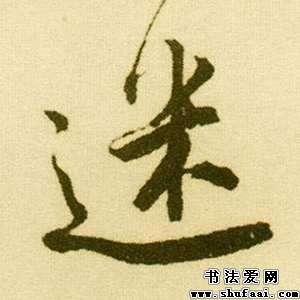 迷
书法爱网
www.shufaai.com